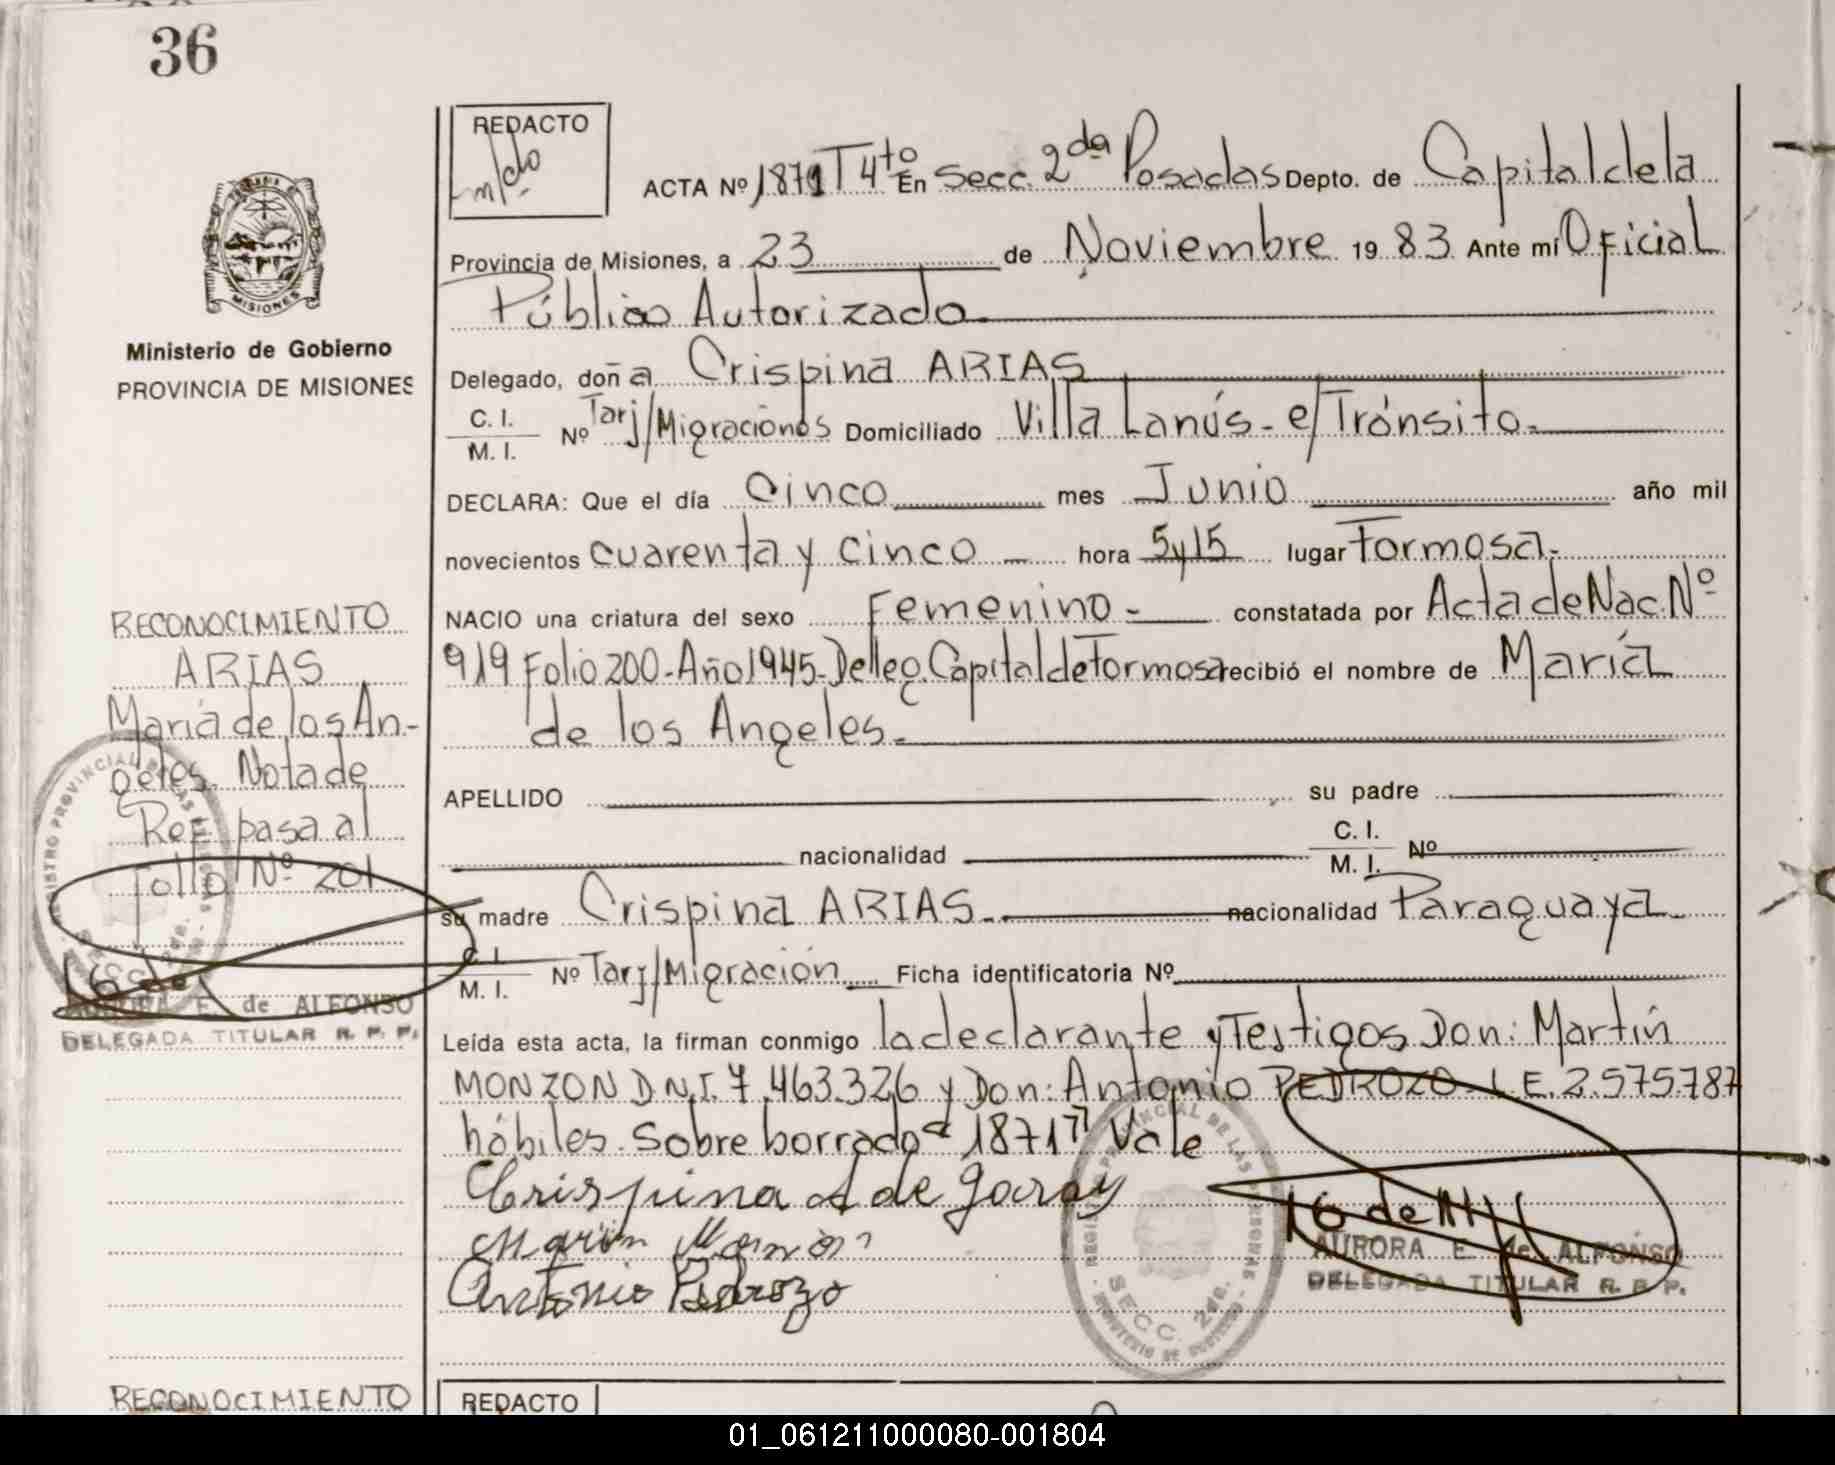 36
REDACTO
m/do
ACTA Nº 1871 T 4to En Secc. 2da Posadas Depto. de Capital de la
Provincia de Misiones, a 23 de Noviembre 19 83 Ante mí Oficial
Público Autorizado.
Delegado, doña Crispina ARIAS
C. I.
M. I.
Nº Tarj/Migraciones Domiciliado Villa Lanús - e/Tránsito.
DECLARA: Que el día Cinco mes Junio año mil
novecientos cuarenta y cinco hora 5y15 lugar Formosa.
NACIO una criatura del sexo Femenino - constatada por Acta de Nac. Nº
919 Folio 200-Año 1945- Del leg. Capital de Formosa recibió el nombre de María
de los Angeles.
APELLIDO su padre
nacionalidad C. I.
M. I. Nº
su madre Crispina ARIAS. nacionalidad Paraguaya
C. I.
M. I.
Nº Tarj/Migración Ficha identificatoria Nº
Leída esta acta, la firman conmigo la declarante y Testigos Don: Martín
MONZON D.N.I. 7.463.326 y Don: Antonio PEDROZO L.E. 2.575.787
hábiles. Sobre borrado "1871" Vale
Crispina A de Garay
Martin Monzon
Antonio Pedrozo
REGISTRO PROVINCIAL DE LAS PERSONAS
SECC. 2da.
AURORA E. de ALFONSO
DELEGADA TITULAR R. P. P.
MISIONES
Ministerio de Gobierno
PROVINCIA DE MISIONES
RECONOCIMIENTO
ARIAS
María de los An-
geles. Nota de
Ref. pasa al
Folio Nº 201
REGISTRO PROVINCIAL DE LAS PERSONAS
SECC. 2da.
AURORA E. de ALFONSO
DELEGADA TITULAR R. P. P.
RECONOCIMIENTO
REDACTO
01_061211000080-001804